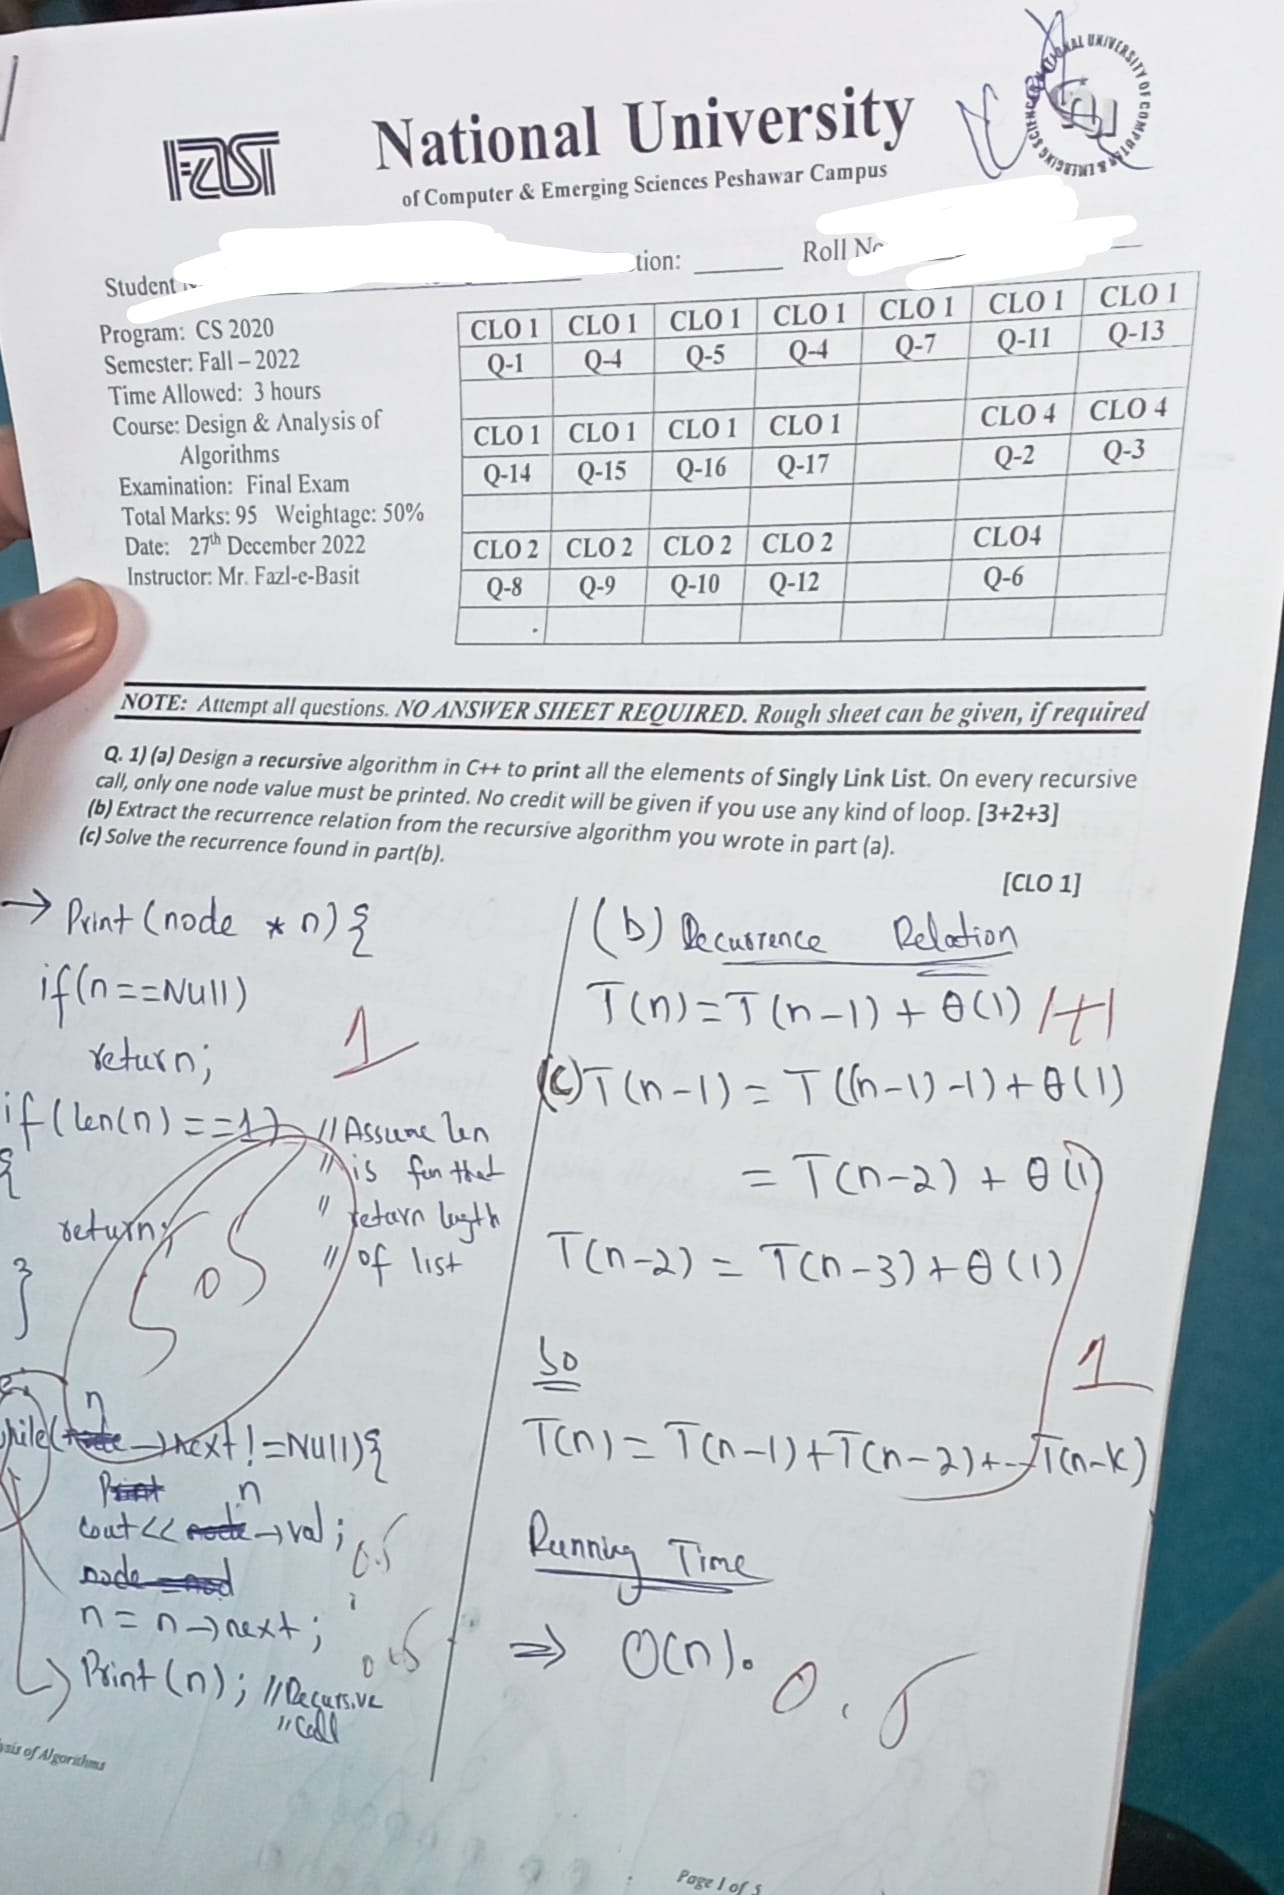 FAST
National University
of Computer & Emerging Sciences Peshawar Campus
NATIONAL UNIVERSITY OF COMPUTER & EMERGING SCIENCES
Student
tion: ______ Roll No
Program: CS 2020
Semester: Fall – 2022
Time Allowed: 3 hours
Course: Design & Analysis of
Algorithms
Examination: Final Exam
Total Marks: 95 Weightage: 50%
Date: 27th December 2022
Instructor: Mr. Fazl-e-Basit
CLO 1 CLO 1 CLO 1 CLO 1 CLO 1 CLO 1 CLO 1
Q-1 Q-4 Q-5 Q-4 Q-7 Q-11 Q-13
CLO 1 CLO 1 CLO 1 CLO 1 CLO 4 CLO 4
Q-14 Q-15 Q-16 Q-17 Q-2 Q-3
CLO 2 CLO 2 CLO 2 CLO 2 CLO4
Q-8 Q-9 Q-10 Q-12 Q-6
NOTE: Attempt all questions. NO ANSWER SHEET REQUIRED. Rough sheet can be given, if required
Q. 1) (a) Design a recursive algorithm in C++ to print all the elements of Singly Link List. On every recursive
call, only one node value must be printed. No credit will be given if you use any kind of loop. [3+2+3]
(b) Extract the recurrence relation from the recursive algorithm you wrote in part (a).
(c) Solve the recurrence found in part(b).
[CLO 1]
→ Print (node * n) {
if(n==Null)
return;
1
if(len(n)==1) //Assume len
{ // is fun that
return; // return length
} // of list
0.5
while(n→next!=Null){
cout<< n→val;
0.5
n = n→next;
Print(n); //Recursive
//Call
0.5
(b) Recurrence Relation
T(n)=T(n-1)+θ(1) 1+1
(c) T(n-1) = T((n-1)-1)+θ(1)
= T(n-2) + θ(1)
T(n-2) = T(n-3)+θ(1)
So
1
T(n) = T(n-1)+T(n-2)+--T(n-k)
Running Time
⇒ O(n).
0.5
ysis of Algorithms
Page 1 of 5